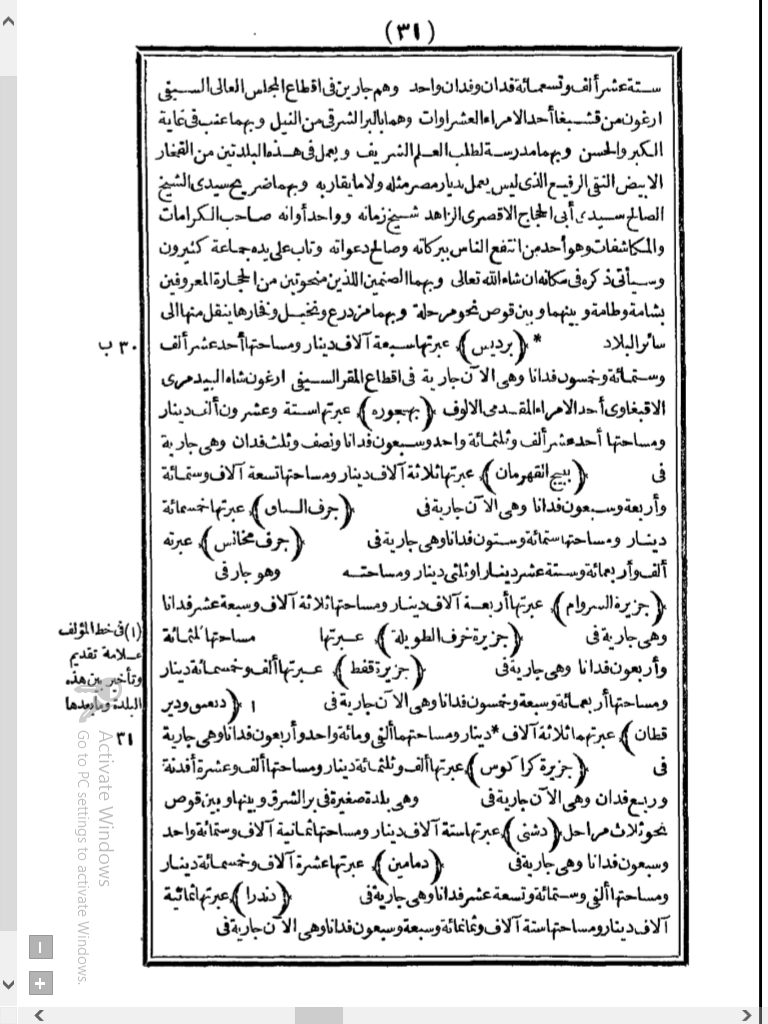 (٣١)
ستة عشر ألف وتسعمائة فدان وفدان واحد وهم جارين فى اقطاع المجلس العالى السيفى
ارغون من قشبغا أحد الامراء العشراوات وهما بالبر الشرقى من النيل وبهما عنب فى غاية
الكبر والحسن وبهما مدرسة لطلب العلم الشريف ويعمل فى هذه البلدتين من الفخار
الابيض النقى الرفيع الذى ليس يعمل بديار مصر مثله ولا ما يقاربه وبهما ضريح سيدى الشيخ
الصالح سيدى أبى الحجاج الاقصرى الزاهد شيخ زمانه وواحد أوانه صاحب الكرامات
والمكاشفات وهو أحد من انتفع الناس ببركاته وصالح دعواته وتاب على يده جماعة كثيرون
وسيأتى ذكره فى مكانه ان شاء الله تعالى وبهما الصنمين اللذين منحوتين من الحجارة المعروفين
بشامة وطامة وبينهما وبين قوص نحو مرحلة وبهما مزدرع ونخيل وفخارها ينقل منها الى
سائر البلاد * (برديس) عبرتها سبعة آلاف دينار ومساحتها أحد عشر ألف
٣٠ ب
وستمائة وخمسون فدانا وهى الآن جارية فى اقطاع المقر السيفى ارغون شاه البيدمرى
الاقبغاوى أحد الامراء المقدمى الالوف (بهجوره) عبرتها ستة وعشرون ألف دينار
ومساحتها أحد عشر ألف وثلثمائة واحد وسبعون فدانا ونصف وثلث فدان وهى جارية
فى (بيج القهرمان) عبرتها ثلاثة آلاف دينار ومساحتها تسعة آلاف وستمائة
وأربعة وسبعون فدانا وهى الآن جارية فى (جرف الساق) عبرتها خمسمائة
دينار ومساحتها ستمائة وستون فدانا وهى جارية فى (جرف مخانس) عبرته
ألف وأربعمائة وستة عشر دينارا وثلثى دينار ومساحته وهو جار فى
(جزيرة السروام) عبرتها أربعة آلاف دينار ومساحتها ثلاثة آلاف وسبعة عشر فدانا
وهى جارية فى (جزيرة خرف الطويلة) عبرتها مساحتها ثلثمائة
وأربعون فدانا وهى جارية فى (جزيرة قفط) عبرتها ألف وخمسمائة دينار
ومساحتها أربعمائة وسبعة وخمسون فدانا وهى الآن جارية فى ١ (دنعسى ودير
(١) فى خط المؤلف
علامة تقديم
وتأخير بين هذه
البلدة وما بعدها
قطان) عبرتهما ثلاثة آلاف * دينار ومساحتهما ألفى ومائة واحد وأربعون فدانا وهى جارية
٣١
فى (جزيرة كراكوس) عبرتها ألف وثلثمائة دينار ومساحتها ألف وعشرة أفدنة
وربع فدان وهى الآن جارية فى وهى بلدة صغيرة فى بر الشرق وبينها وبين قوص
نحو ثلاث مراحل (دشنى) عبرتها ستة آلاف دينار ومساحتها ثمانية آلاف وستمائة واحد
وسبعون فدانا وهى جارية فى (دمامين) عبرتها عشرة آلاف وخمسمائة دينار
ومساحتها ألفى وستمائة وتسعة عشر فدانا وهى جارية فى (دندرا) عبرتها ثمانية
آلاف دينار ومساحتها ستة آلاف وثمانمائة وسبعة وسبعون فدانا وهى الآن جارية فى
Activate Windows
Go to PC settings to activate Windows.